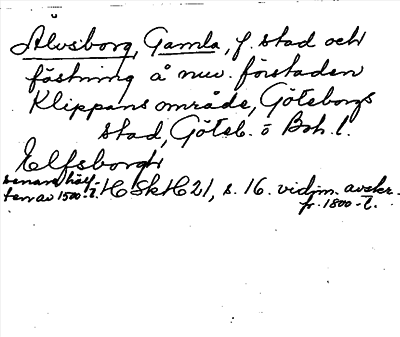 Älvsborg, Gamla, f. stad och
fästning å nuv. förstaden
Klippans område, Göteborgs
stad, Göteb. o Boh. l.
Elfsborgh
senare hälf-
ten av 1500-t. HSkH21, s. 16. vidim. avskr.
fr. 1800-t.